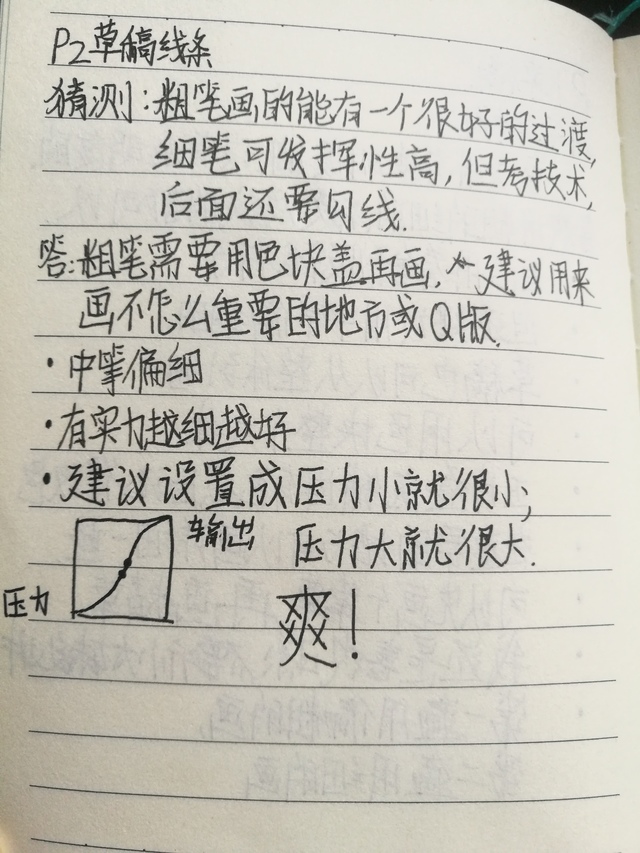 P2草稿线条
猜测:粗笔画的能有一个很好的过渡,
细笔可发挥性高,但考技术,
后面还要勾线.
答:粗笔需要用色块盖再画, 建议用来
画不怎么重要的地方或Q版.
·中等偏细
·有实力越细越好
·建议设置成压力小就很小;
输出 压力大就很大.
压力
爽!